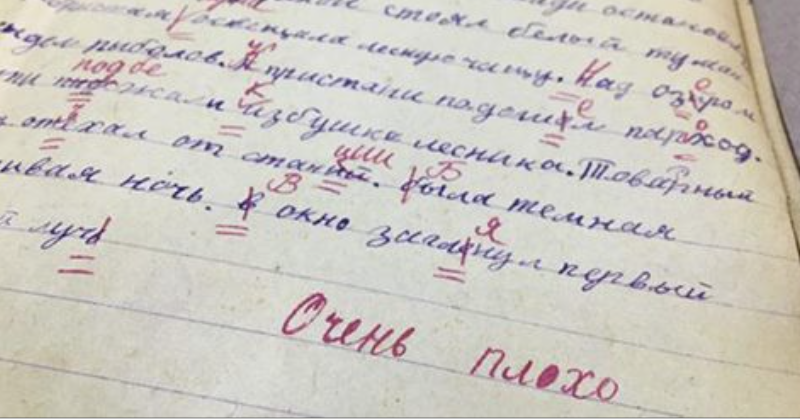 остановил
стоял белый туман
освещала лесную чащу. Над озером
рыболов. К пристани подошел пароход.
подбежали к избушке лесника. Товарный
отъехал от станции. Была темная
ивая ночь. В окно заглянул первый
й луч
Очень плохо